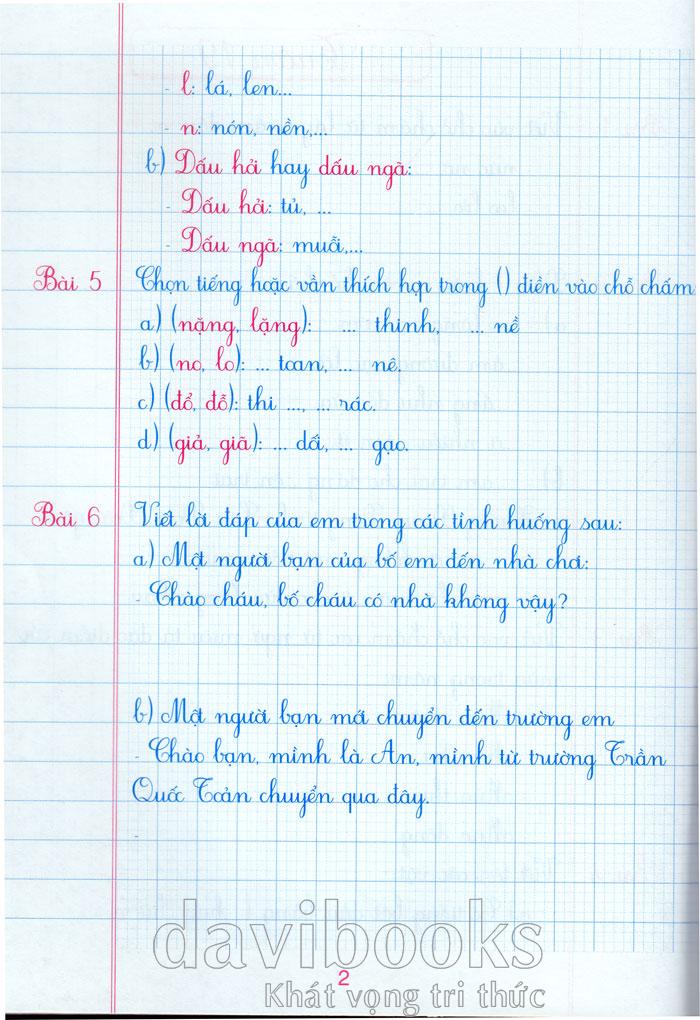 - l: lá, len...
- n: nón, nền,...
b) Dấu hỏi hay dấu ngã:
- Dấu hỏi: tủ, ...
- Dấu ngã: muỗi,...
Bài 5 Chọn tiếng hoặc vần thích hợp trong () điền vào chỗ chấm
a) (nặng, lặng): ... thinh, ... nề
b) (no, lo): ... toan, ... nê.
c) (đổ, đỗ): thi ..., ... rác.
d) (giả, giã): ... dối, ... gạo.
Bài 6 Viết lời đáp của em trong các tình huống sau:
a) Một người bạn của bố em đến nhà chơi:
- Chào cháu, bố cháu có nhà không vậy?
b) Một người bạn mới chuyển đến trường em
- Chào bạn, mình là An, mình từ trường Trần
Quốc Toản chuyển qua đây.
-
davibooks
2
Khát vọng tri thức